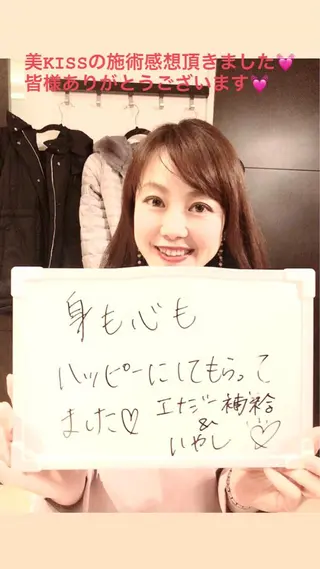 美KISSの施術感想頂きました💓
皆様ありがとうございます💓
身も心も
ハッピーにしてもらって
ました♡ エナジー補給
&
いやし♡